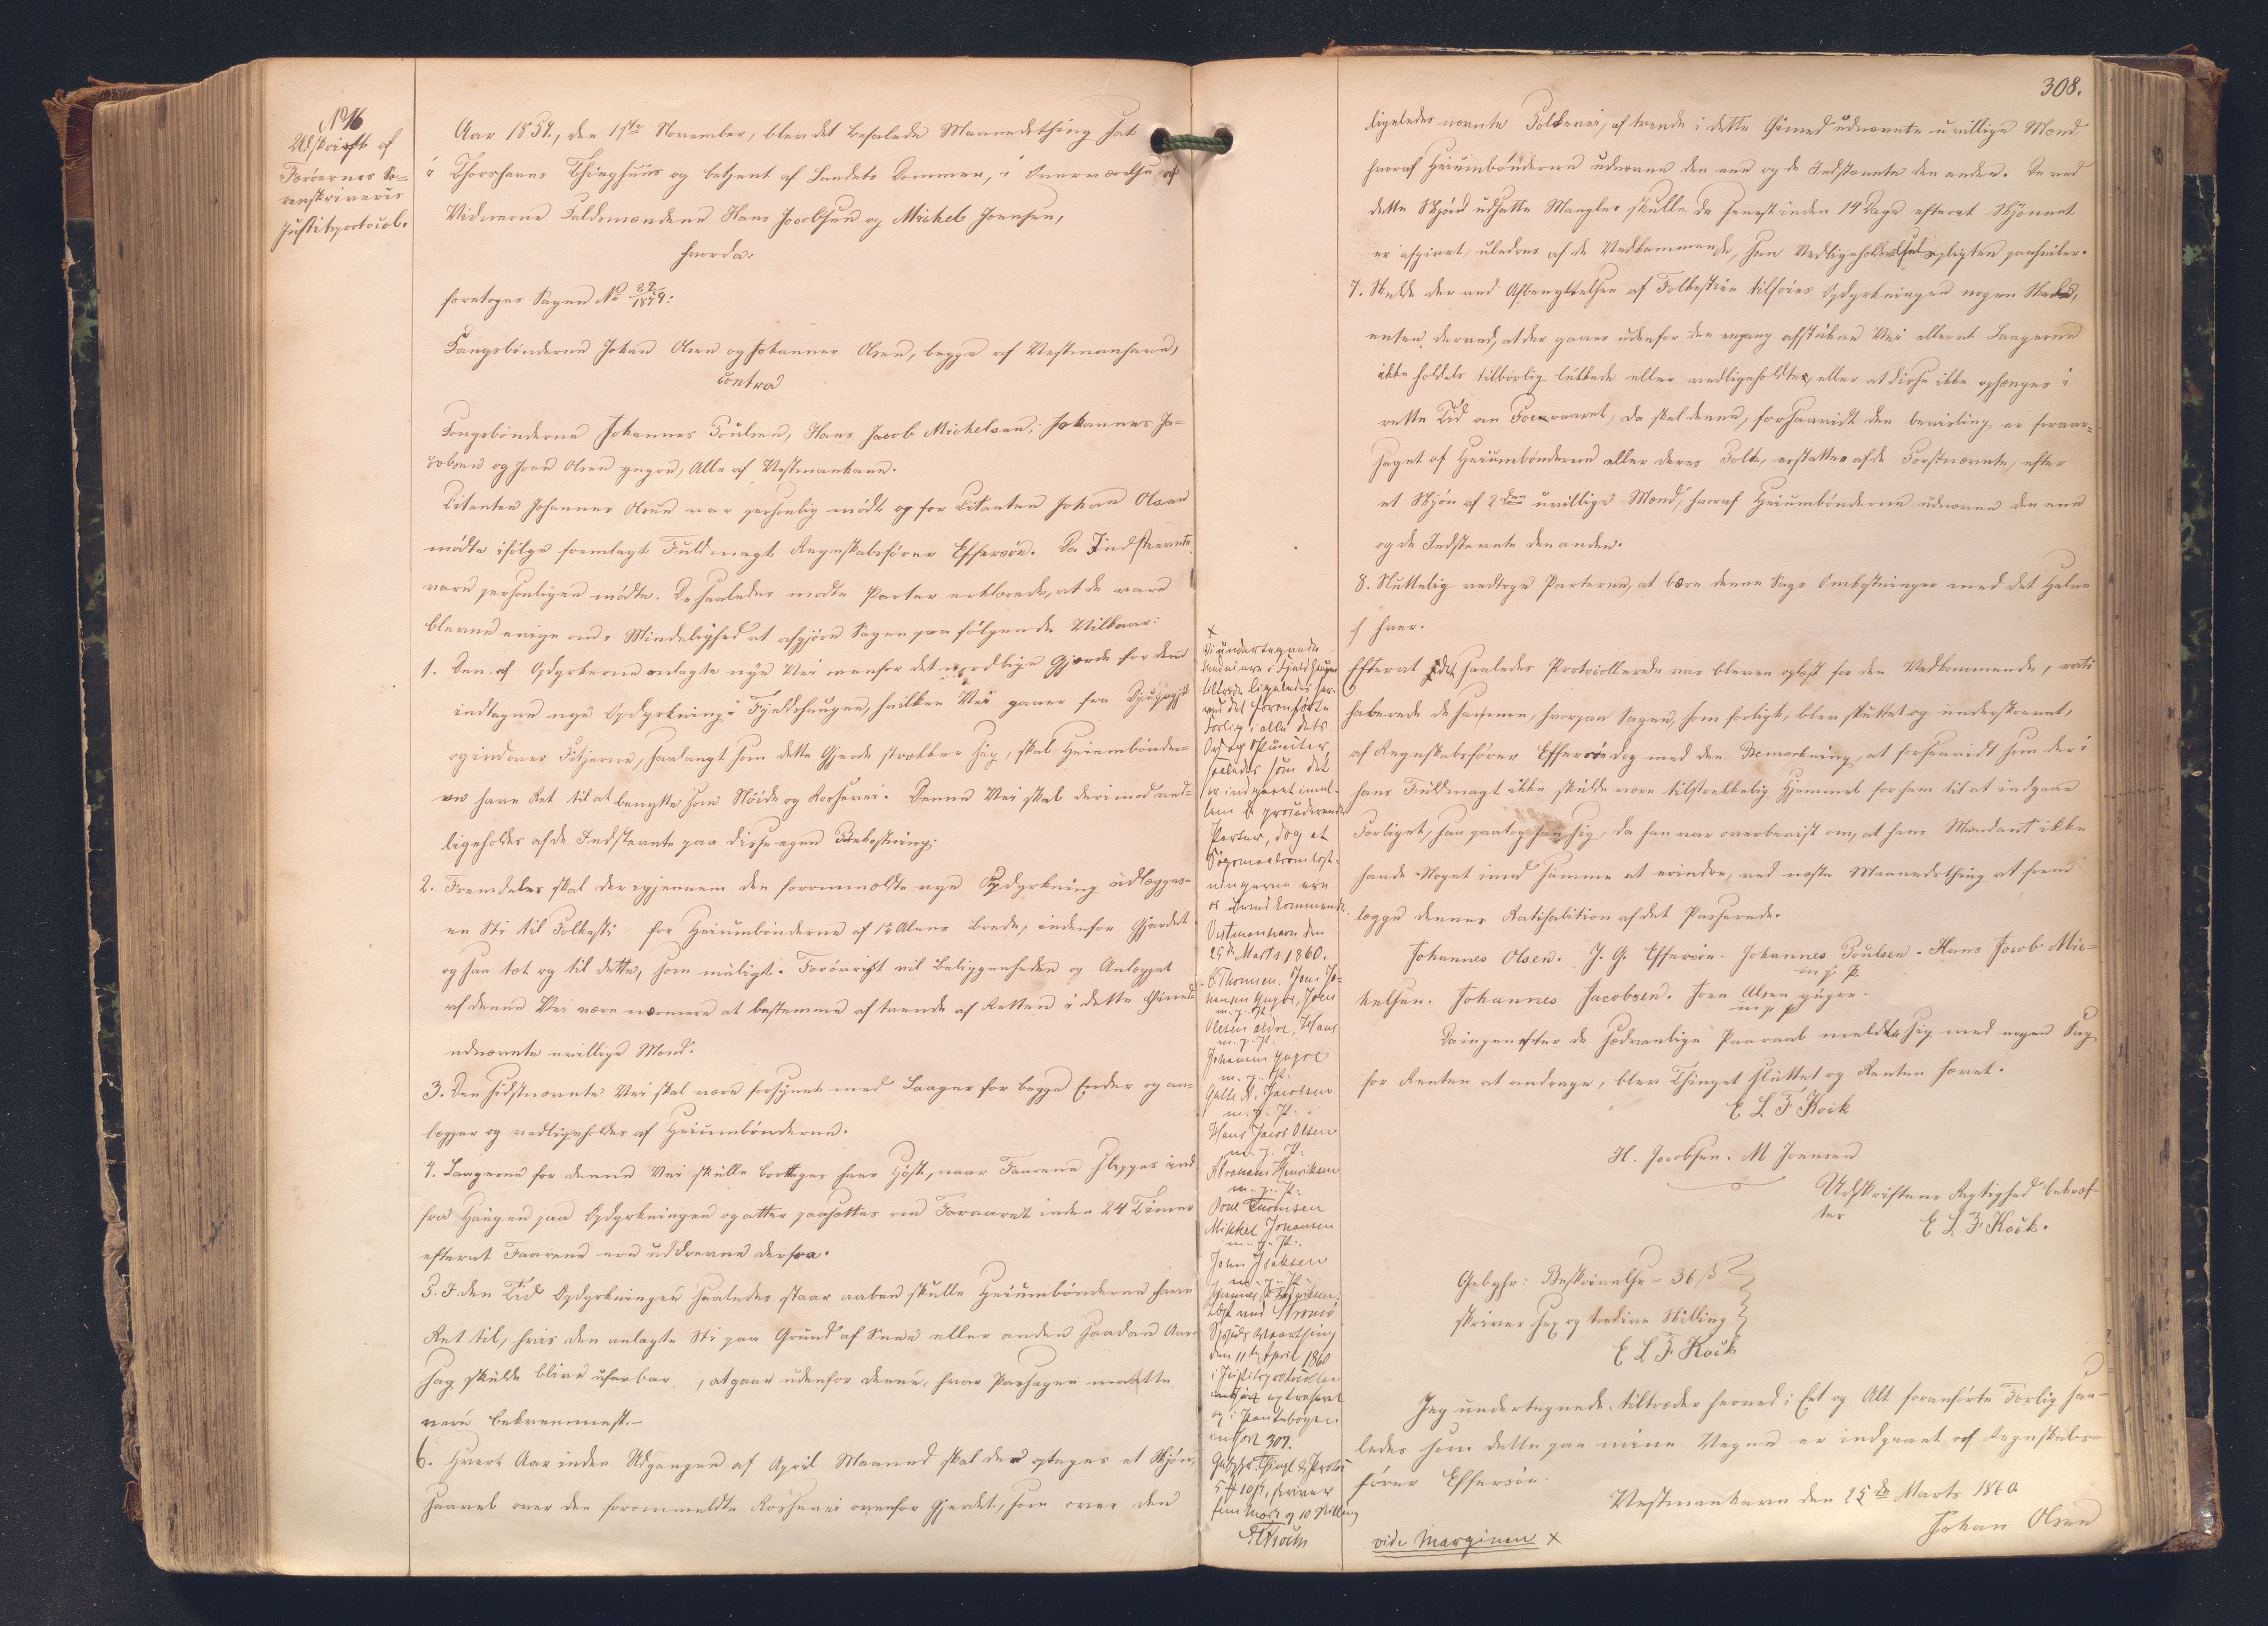 No 16
Udskrift af
Færøernes So-
renskriveris
Justitsprotocol.
Aar 1859, den 1ste November, blev det befalede Maanedsthing sat
i Thorshavns Thinghuus og betjent af Landets Dommer, i Overværelse af
Vidnerne Kaldsmændene Hans Jacobsen og Michel Joensen,
hvorda:
foretoges Sagen No 22/1859:
Kongsbønderne Johan Olsen og Johannes Olsen, begge af Vestmanhavn,
contra
Kongsbønderne Johannes Poulsen, Hans Jacob Michelsen, Johannes Ja-
cobsen og Joen Olsen yngre, Alle af Vestmanhavn.
Citanten Johannes Olsen var personlig mødt og for Citanten Johan Olsen
mødte ifølge fremlagt Fuldmagt Regnskabsfører Effersøe. De Indstevnte
vare personligen mødte. De saaledes mødte Parter erklærede, at de vare
blevne enige om i Mindelighed at afgjøre Sagen paa følgende Vilkaar:
1. Den af Opdyrkerne anlagte nye Vei ovenfor det nordlige Gjerde for den
indtagne nye Opdyrkning i Fjeldhaugen, hvilken Vei gaaer fra
og indover Fitjerne, saalangt som dette Gjerde strækker sig, skal Heiumbønder-
ne have Ret til at benytte som Kløv og Rossevei. Denne Vei skal derimod ved-
ligeholdes af de Indstevnte paa disses egen Bekostning.
2. Fremdeles skal der igjennem den forommeldte nye Opdyrkning udlægges
en Sti til Folkesti for Heiumbønderne af 1½ Alens Brede, indenfor Gjerdet
og saa tæt op til dette, som muligt. Forøvrigt vil Beliggenheden og Anlægget
af denne Vei være nærmere at bestemme af trende af Retten i dette Øiemed
udnævnte uvillige Mænd.
3. Den sidstnævnte Vei skal være forsynet med Laager for begge Ender og an-
lægges og vedligeholdes af Heiumbønderne.
4. Laagerne for denne Vei skulle borttages hver Høst, naar Faarene slippes ind
fra Haugen paa Opdyrkningen og atter paasættes om Foraaret inden 24 Timer
efterat Faarene ere uddrevne derfra.
5. I den Tid Opdyrkningen saaledes staar aaben skulle Heiumbønderne have
Ret til, hvis den anlagte Sti paa Grund af Snee eller anden saadan Aar-
sag skulde blive ufarbar, at gaae udenfor denne, hvor Passagen maatte
være bekvemmest.
6. Hvert Aar inden Udgangen af April Maaned skal der optages et Skjøn,
saavel over den forommeldte Rossevei ovenfor Gjerdet, som over den
×
Vi undertegnede
Lodseiere i Fjeldhaugen
tiltræde ligeledes her-
ved det foranførte
Forlig i alle dets
Ord og Puncter,
saaledes som det
er indgaaet imel-
lem de procederende
Parter, dog at
Søgsmaalsomkost-
ningerne ere
os uvedkommende.
Vestmanhavn den
25de Marts 1860.
C. Thomsen. Joen Jo-
hansen yngre, Joen
m. f. P.
Olesen ældre, Hans
m. f. P.
Johansen yngre
m. f. P.
Galle N. Jacobsen
m. f. P.
Hans Jacob Olsen
m. f. P.
Abraham Henriksen
m. f. P.
Poul Thomsen
Mikkel Johansen
m. f. P.
John Isaksen
m. f. P.
Læst ved Strømø
Syssels Vaarthing
den 11te April 1860
i Justitsprotocollen
extraheret
og i Pantebogen
indført 307.
5 # 10 ß, skriver
fem Mark og 10 Skilling
308.
ligeledes nævnte Folkevei, af trende i dette Øiemed udnævnte uvillige Mænd
hvoraf Heiumbønderne udnævne den ene og de Indstævnte den anden. De ved
dette Skjøn udsatte Mangler skulle da senest inden 14 Dage efterat Skjønnet
er afgivet, udedres af de Vedkommende, som Vedligeholdelsespligten paahviler.
7. Skulde der ved Afbenyttelsen af Folkestien tilføies Opdyrkningen nogen Skade,
enten derved, at der gaaes udenfor den engang afstukne Vei eller at Laagerne
ikke holdes tilbørlig lukkede eller vedligeholdte, eller at disse ikke ophænges i
rette Tid om Foraaret, da skal denne, forsaavidt den beviislig er foraar-
saget af Heiumbønderne eller deres Folk, erstattes af de Førstnævnte, efter
et Skjøn af 2den uvillige Mænd, hvoraf Heiumbønderne udnævne den ene
og de Indstevnte den anden.
8. Sluttelig vedtoge Parterne, at bære denne Sags Omkostninger med det Halve
hver.
Efterat det saaledes Protocollerede var bleven oplæst for den Vedkommende, rati-
haberede de samme, hvorpaa Sagen, som forligt, blev sluttet og underskrevet,
af Regnskabsfører Effersøe dog med den Bemærkning, at forsaavidt som der i
hans Fuldmagt ikke skulde være tilstrækkelig Hjemmel for ham til at indgaae
Forliget, saa paatog han sig, da han var overbeviist om, at hans Mandant ikke
havde Noget imod samme at erindre, ved næste Maanedsthing at frem-
lægge dennes Ratihabition af det Passerede.
Johannes Olsen. J. G. Effersøe. Johannes Poulsen. Hans Jacob Mic-
m. f. P.
helsen. Johannes Jacobsen. Joen Olsen yngre.
m. f. P.
Da ingen efter de sædvanlige Paaraab meldte sig med nogen Sag
for Retten at andrage, blev Thinget sluttet og Retten hævet.
E L F Kock
H. Jacobsen. M Joensen
Udskriftens Rigtighed bekræf-
tes
E L F Kock.
Gebyhr: Beskrivelse = 36 ß
skriver sex og tredive Skilling
E L F Kock
Jeg undertegnede tiltræder herved i Eet og Alt foranførte Forlig saa-
ledes som dette paa mine Vegne er indgaaet af Regnskabs-
fører Effersøe.
Vestmanhavn den 25de Marts 1860
Johan Olsen
vide Marginen ×